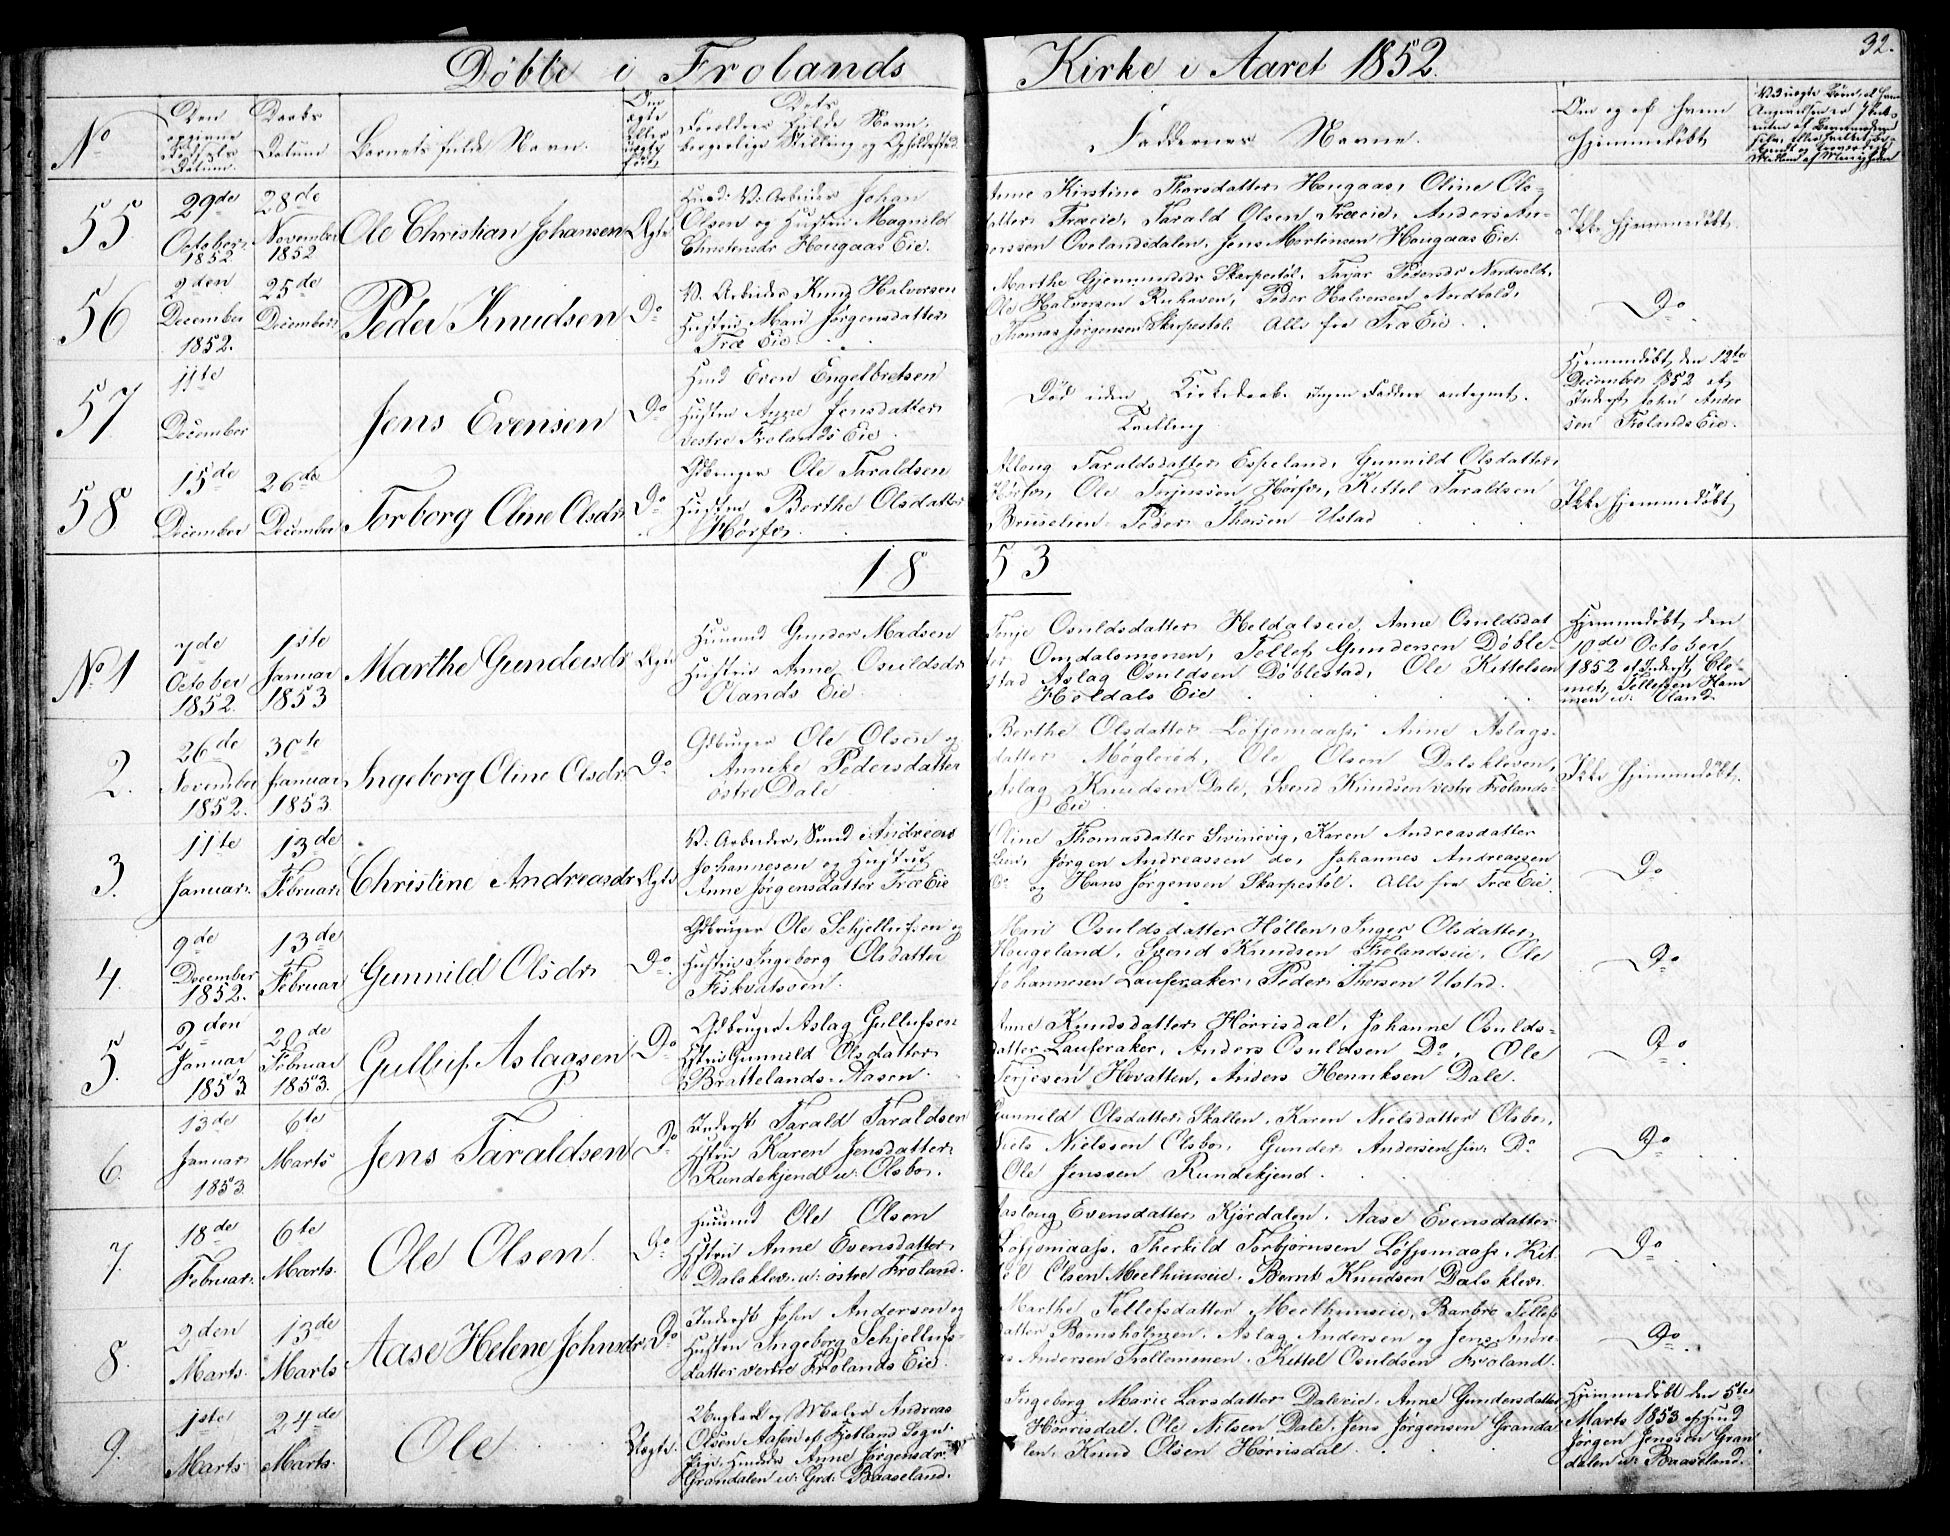 Døbte i Frolands Kirke i Aaret 1852.
32.
No
Den opgivne Fødsels Datum.
Daabs Datum
Barnets fulde Navn.
Om ægte eller uægte født
Dets Forældres fulde Navn, borgerlige Stilling og Opholdssted.
Faddernes Navne.
Om og af hvem hjemmedøbt
55
29de October 1852
28de November 1852
Ole Christian Johansen
Ægte
Olsen og Hustru Magnild
Christensdr Hougaas Eie.
Anne Kirstine Tharsdatter Hougaas, Oline Ols-
datter Træeie, Tarald Olsen Træeie, Anders An-
derssen Ovelandsdalen, Jens Mortensen Hougaas Eie.
Ikke hjemmedøbt.
56
2den December 1852.
25de December
Peder Knudsen
Do
V. Arbeider Knud Halvorsen
Hustru Mari Jørgensdatter
Træ Eie.
Ole Halvorsen Ruhaven, Peder Halvorsen Nordvold,
Thomas Jørgensen Skarpestøl. Alle fra Træ Eie.
Do
57
11te December
Jens Evensen
Do
Hmd Even Engelbretsen
Hustru Anne Jensdatter
vestre Frolands Eie.
Død uden Kirkedaab. ingen Faddere antegnet.
Tvilling
Hjemmedøbt den 12te
December 1852 af
Inderst John Ander
sen Frolands Eie.
58
15de December
26de December
Torborg Oline Olsdr
Do
Gdbruger Ole Taraldsen
Hustru Berthe Olsdatter
Hørfos.
Asloug Taraldsdatter Espeland, Gunnild Olsdatter
Hørfos, Ole Terjessen Hørfos, Kittel Taraldsen
Peder Thorsen Ustad
Ikke hjemmedøbt
1853
No 1
7de October 1852.
1ste Januar 1853
Marthe Gundersdr
Ægte
Huusmd Gunder Madsen
Hustru Anne Osuldsdr
Olands Eie
Osuldsdatter Heldalseie, Anne Osuldsdat
ter Omdalsmonen, Tellef Gundersen Døble-
stad Aslag Osuldsen Døblestad, Ole Kittelsen
Heldals Eie
Hjemmedøbt den
10de October
1852 af Inderst Cle-
met Tellefsen Ham
men u: Oland.
2.
26de November 1852.
30te Januar 1853.
Ingeborg Oline Olsdr
Do
Gdbruger Ole Olsen og
Anneke Pedersdatter
østre Dale
Berthe Olsdatter Løfsjomaass, Anne Aslags-
datter Møglerød, Ole Olsen Dalskleven,
Aslag Knudsen Dale, Svend Knudsen vestre Frolands-
Eie
Ikke hjemmedøbt.
3.
11te Januar.
13de Februar
Christine Andreasdr
Ægte
V. Arbeider, Smed Andreas
Johannesen og Hustru
Anne Jørgensdatter Træ Eie
Oline Thomasdatter Svinevig, Karen Andreasdatter
Jørgen Andreassen do, Johannes Andreassen
Do og Hans Jørgensen Skarpestøl. Alle fra Træ Eie.
Do
4.
9de December 1852.
13de Februar
Gunnild Olsdr
Do
Gdbruger Ole Schjellufsen og
Hustru Ingeborg Olsdatter
Fiskvatsøen.
Mari Osuldsdatter Høllen, Inger Olsdatter
Hougeland, Svend Knudsen Frolandseie, Ole
Johannesen Lauveraker, Peder Thorsen Ustad.
Do
5.
2den Januar 1853
20de Februar 1853.
Gulluf Aslagsen
Do
Gdbruger Aslag Gullufsen
Hstru Gunnild Olsdatter
Brattelands-Aasen.
Anne Knudsdatter Hørrisdal, Johanne Osulds-
datter Lauveraker, Anders Osuldsen Do, Ole
Terjesen Hovatten, Anders Henriksen Dale.
Do
6.
13de Januar 1853.
6te Marts
Jens Taraldsen
Do
Inderst Tarald Taraldsen
Hstru Karen Jensdatter
Rundekjend u: Olsbo.
Gunnild Olsdatter Skallen, Karen Nielsdatter Olsbo,
Niels Nielssen Olsbo, Gunder Andersen Do
Ole Jenssen Rundekjend.
Do
7.
18de Februar.
6te Marts.
Ole Olsen
Do
Huusmd Ole Olsen
Hstru Anne Evensdatter
Dalsklev. u: østre Froland.
Aaslaug Evensdatter Kjørdalen. Aase Evensdatter
Løfsjomaass. Therkild Torbjørnsen Løfsjomaass. Kit-
tel Olsen Mjelhuuseie. Bernt Knudsen Dalsklev.
Do
8.
2den Marts.
13de Marts
Aase Helene Johnsdr
Do
Inderst John Andersen og
Hustru Ingeborg Schjellufs-
datter vestre Frolands Eie.
Marthe Tellefsdatter Mjelhuuseie, Barbro Tellefs
datter Bomsholmen. Aslag Andersen og Jens Andre-
as Andersen Trollomonen. Kittel Osuldsen Froland.
Do
9.
1ste Marts.
24de Marts.
Ole
Uægte.
Ungkarl og Maler Andreas
Olsen Aasen af Hetland Sogn.
Pige Anne Jørgensdr
Grandalen u: Grd: Baaseland.
Ingeborg Marie Larsdatter Daleeie. Anne Gundersdatter
Hørrisdal. Ole Nilsen Dale. Jens Jørgensen Granda
len. Knud Olsen Hørrisdal.
Hjemmedøbt den 5te
Marts 1853 af Hmd
Jørgen Jenssen Gran
dalen u: Baaseland.